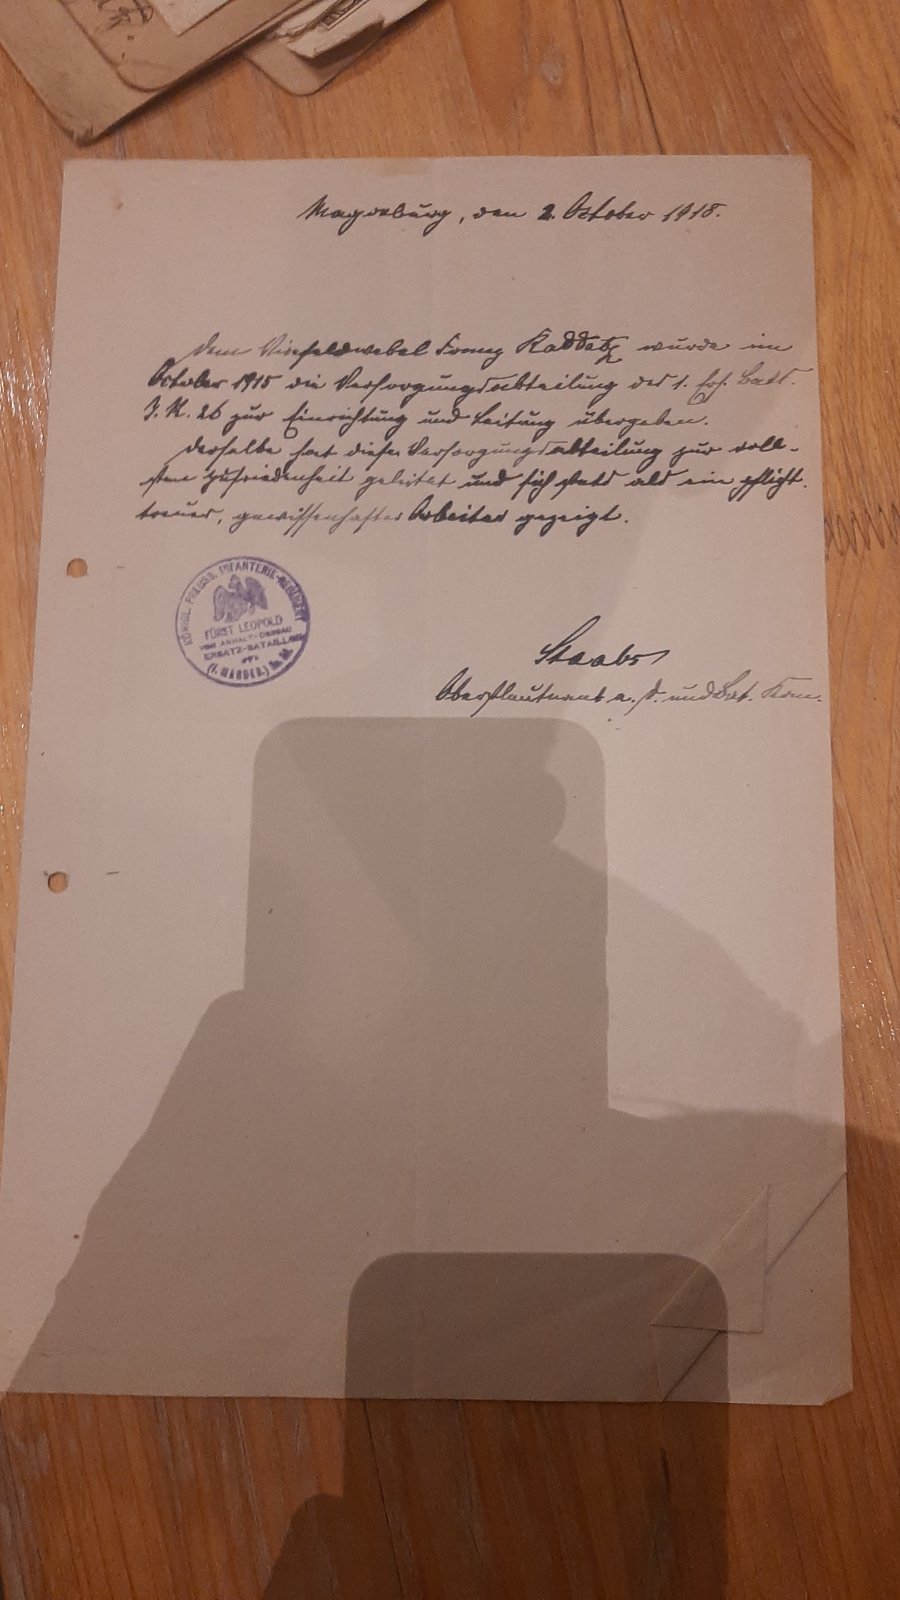 Magdeburg, den 2. October 1918.
Dem Vizefeldwebel Franz Kaddatz wurde im
October 1915 die Versorgungsabteilung des 1. Ers. Batls.
I. R. 26 zur Einrichtung und Leitung übergeben.
Derselbe hat diese Versorgungsabteilung zur voll-
sten Zufriedenheit geleitet und sich stets als ein pflicht-
treuer, gewissenhafter Arbeiter gezeigt.
KÖNIGL. PREUSS. INFANTERIE-REGIMENT
FÜRST LEOPOLD
VON ANHALT-DESSAU
ERSATZ-BATAILLON
(1. MAGDEB.) No. 26.
Staabs
Oberstleutnant a. D. und Bat. Kom.